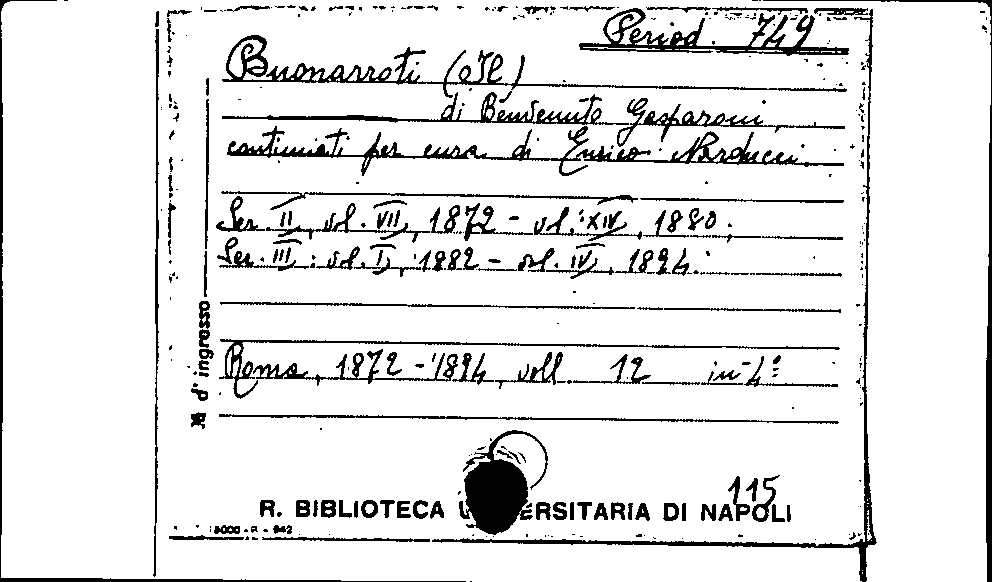 Period. 749
Buonarroti (Il)
di Benvenuto Gasparoni,
continuati per cura di Enrico Narducci.
Ser. II, vol. VII, 1872 - vol. XIV, 1880;
Ser. III: vol. I, 1882 - vol. IV, 1894.
Roma, 1872 - 1894, voll. 12 in-4º
№ d'ingresso
115
R. BIBLIOTECA U ERSITARIA DI NAPOLI
5000 - R - 942